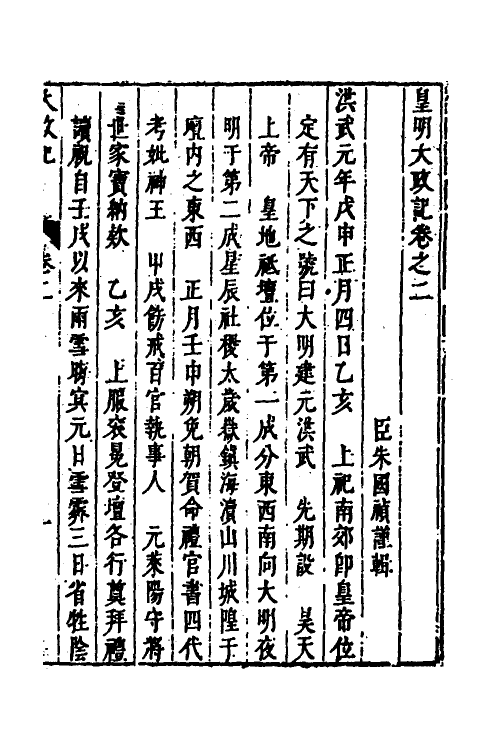 皇明大政記卷之二
臣朱國禎謹輯
洪武元年戊申正月四日乙亥　上祀南郊卽皇帝位
定有天下之號曰大明建元洪武　先期設　昊天
上帝　皇地祇壇位于第一成分東西南向大明夜
明于第二成星辰社稷太歲嶽鎮海瀆山川城隍于
壝內之東西　正月壬申朔免朝賀命禮官書四代
考妣神主　甲戌飭戒百官執事人　元萊陽守將
世家寶納款　乙亥　上服衮冕登壇各行奠拜禮
讀祝自壬戌以來雨雪晦冥元日雪霽三日省牲陰
大政記　卷二　一